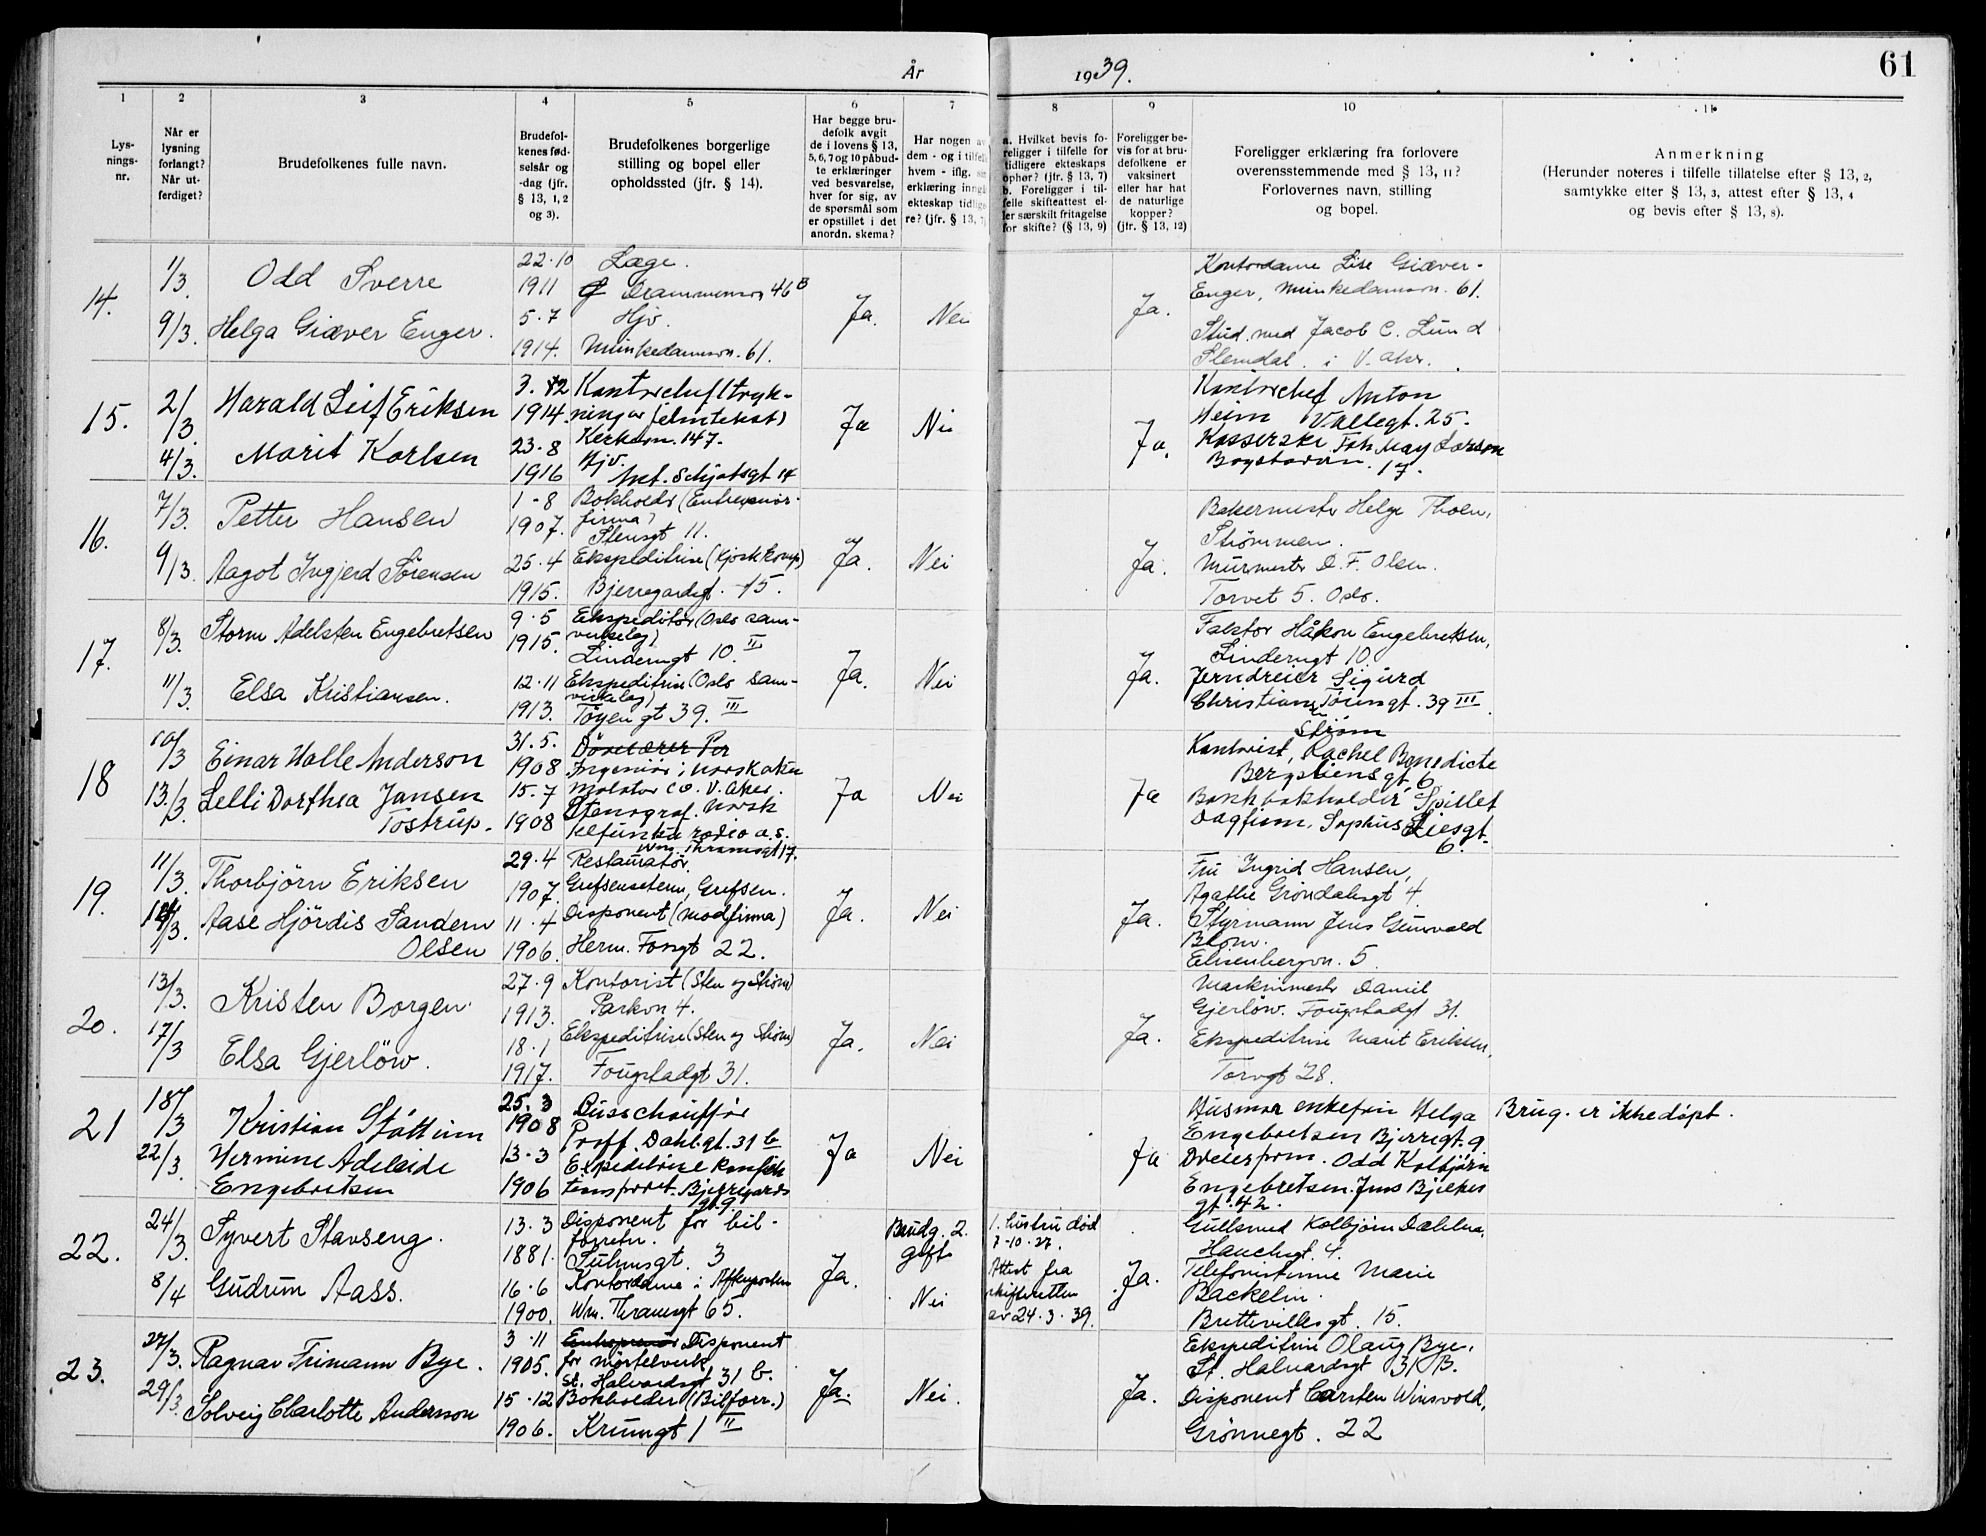 År 1939.
61
1 2 3 4 5 6 7 8 9 10 11
Lys-
nings-
nr.
Når er
lysning
forlangt?
Når ut-
ferdiget?
Brudefolkenes fulle navn.
Brudefol-
kenes fød-
selsår og
-dag (jfr.
§ 13, 1, 2
og 3).
Brudefolkenes borgerlige
stilling og bopel eller
opholdssted (jfr. § 14).
Har begge bru-
defolk avgit
de i lovens § 13,
5, 6, 7 og 10 påbud-
te erklæringer
ved besvarelse,
hver for sig, av
de spørsmål som
er opstillet i det
anordn. skema?
Har nogen av
dem - og i tilfelle
hvem - iflg.
erklæring inngått
ekteskap tidlige-
re? (jfr. § 13, 7)
a. Hvilket bevis fo-
religger i tilfelle for
tidligere ekteskaps
ophør? (jfr. § 13, 7)
b. Foreligger i til-
felle skifteattest el-
ler særskilt fritagelse
for skifte? (§ 13, 9)
Foreligger be-
vis for at bru-
defolkene er
vaksinert
eller har hat
de naturlige
kopper?
(jfr. § 13, 12)
Foreligger erklæring fra forlovere
overensstemmende med § 13, 11?
Forlovernes navn, stilling
og bopel.
Anmerkning
(Herunder noteres i tilfelle tillatelse efter § 13, 2,
samtykke efter § 13, 3, attest efter § 13, 4
og bevis efter § 13, 8).
14.
1/3
9/3.
Odd Sverre
Helga Giæver Enger.
22.10
1911
5.7
1914.
Læge.
Drammensvn 46 B
Hjv.
Munkedamsvn. 61.
Ja.
Nei
Ja.
Kontordame Lise Giæver-
Enger, Munkedamsvn. 61.
Stud. med Jacob C. Lund
Slemdal i V. Aker.
15.
2/3.
4/3.
Harald Leif Eriksen
Marit Karlsen
3.12
1914.
23.8
1916
Kirkevn. 147.
Hjv.
Ant. Schjøtsgt 14
Ja
Nei
Ja.
Kontorchef Anton
Heim Vallegt. 25.
Kasserske Frk May Larsen
Bogstadvn. 17.
16.
7/3.
9/3.
Petter Hansen
Aagot Ingjerd Sørensen
1-8
1907.
25.4
1915.
Bokholder (Entreprenør-
firma)
Stensgt 11.
Ekspeditrise (Kjøsk komp)
Bjerregårdsgt. 15.
Ja.
Nei
Ja.
Bakermester Helge Thoen,
Strømmen.
Murmester D. F. Olsen.
Torvet 5. Oslo.
17.
8/3.
11/3.
Storm Adelsten Engebretsen
Elsa Kristiansen.
9.5
1915.
12.11
1913.
Ekspeditør (Oslo sam-
virkelag)
Linderngt 10. II
Ekspeditrise (Oslo sam-
virkelag)
Tøyengt 39. III
Ja.
Nei
Ja.
Faktor Håkon Engebretsen,
Linderngt 10
Jerndreier Sigurd
Christiansen Tøiengt. 39 III.
18
10/3
13./3.
Einar Halle Anderson
Lelli Dorthea Jansen
Tostrup.
31.5.
1908
15.7
1908
Ingeniør i norsk aku
mulator co. V. Aker.
Stenograf. Norsk
telefunken radio a.s.
Wm. Thranesgt 17.
Ja
Nei
Ja
Strøm
Kontorist, Rachel Benedicte
Bergsliensgt. 6
Bankbokholder, Spillet
Dagfinn, Sophus Liesgt.
6.
19.
11/3.
Thorbjörn Eriksen
Aase Hjördis Sandem
Olsen
29.4
1907.
11.4
1906.
Restauratør.
Grefsenseteren, Grefsen.
Disponent (modfirma)
Herm. Fossgt 22.
Ja.
Nei
Ja.
Fru Ingrid Hansen,
Agathe Grøndahlsgt 4.
Styrmann Jens Gunvald
Blom.
Elisenbergvn. 5.
20.
13/3.
17/3
Kristen Borgen.
Elsa Gjerlöw.
27.9
1913.
18.1
1917.
Kontorist (Sten og Strøm)
Parkvn 4.
Ekspeditrise (Sten og Strøm)
Fougstadgt 31.
Ja.
Nei
Ja.
Maskinmester Daniel
Gjerløw. Fougstadgt 31.
Ekspeditrise Marit Eriksen,
Torvgt 28.
21
18/3
22/3.
Kristian Støttum
Hermine Adeleide
Engebretsen
25.3
1908
13.3
1906
Busschauffør
Proff. Dahlsgt. 31 b
Expeditrise
Bjerregårds
gt. 9
Ja
Nei
Ja
Husmor enkefru Helga
Engebretsen Bjerregt. 9
Dreierform. Odd Kolbjørn
Engebretsen. Jens Bjelkes
gt. 42.
Brug. er ikke døpt.
22.
24/3.
8/4
Syvert Stavseng.
Gudrun Aass.
13.3
1881.
16.6
1900.
Disponent for bil-
forretn.
Suhmsgt. 3
Kontordame i Aftenposten
Wm. Thranesgt 65.
Ja.
Brudg. 2.
gift
Nei
1. hustru død
7-10-27.
Attest fra
skifteretten
av 24.3.39.
Ja.
Gullsmed Kolbjørn Dahlen,
Hauchsgt. 4.
Telefonistinne Marie
Backelin.
Brettevillesgt. 15.
23.
27/3.
29/3.
Ragnar Frimann Bye.
Solveig Charlotte Andersson
3.11
1905.
15.12
1906.
Entreprenør Disponent
for mørtelverk
St. Halvardsgt 31 b.
Bokholder (Bilforr.)
Krumgt 1 II
Ja.
Nei.
Ja.
Ekspeditrise Olaug Bye,
St. Halvardsgt 31 B.
Disponent Carsten Winsvold,
Grønnegt. 22